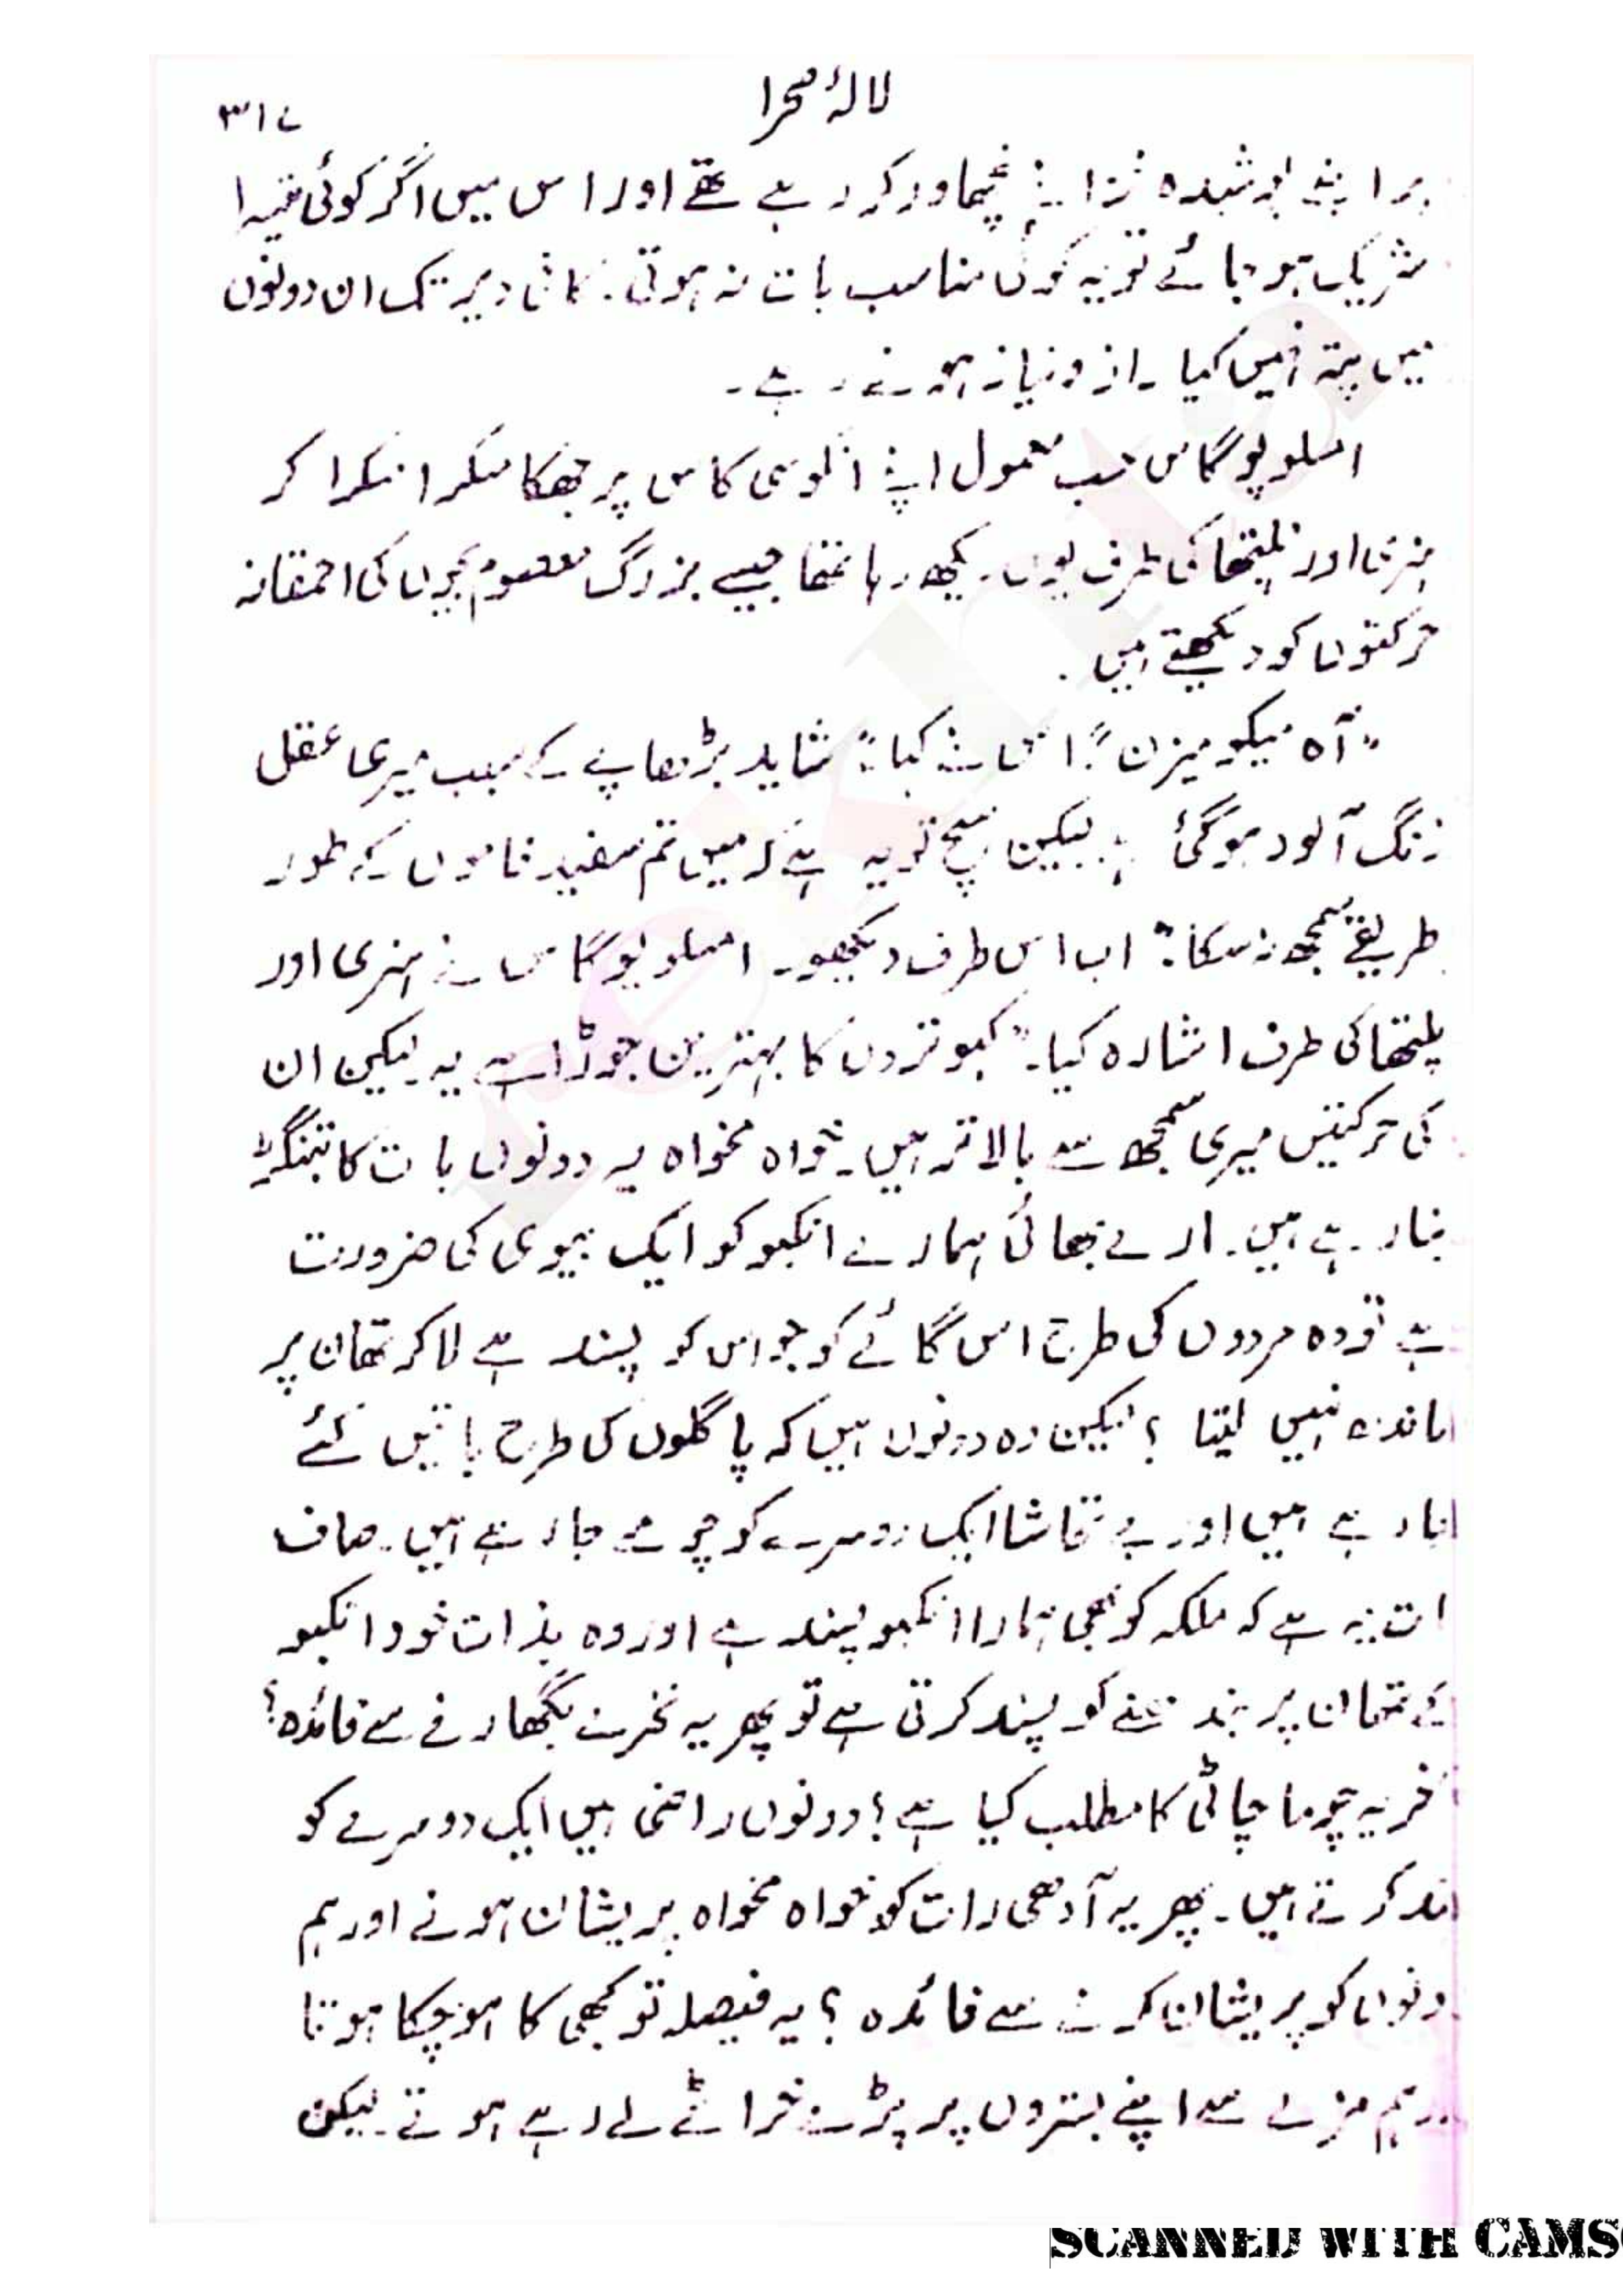 لالۂ صحرا
۳۱۷
پر اپنے پوشیدہ خزانے نچھاور کر رہے تھے اور اس میں اگر کوئی تیسرا
شریک ہو جائے تو یہ کوئی مناسب بات نہ ہوتی۔ کافی دیر تک ان دونوں
میں پتہ نہیں کیا راز و نیاز ہوتے رہے۔
امسلوپوگاس حسب معمول اپنے انکوسی کاس پر جھکا مسکرا مسکرا کر
ہنری اور نلیتھا کی طرف یوں دیکھ رہا تھا جیسے بزرگ معصوم بچوں کی احمقانہ
حرکتوں کو دیکھتے ہیں۔
"آہ میکومیزن" اس نے کہا "شاید بڑھاپے کے سبب میری عقل
زنگ آلود ہو گئی ہے لیکن سچ تو یہ ہے کہ میں تم سفید فاموں کے طور
طریقے سمجھ نہ سکا" اب اس طرف دیکھو۔ امسلوپوگاس نے ہنری اور
نلیتھا کی طرف اشارہ کیا۔ "کبوتروں کا بہترین جوڑا ہے یہ لیکن ان
کی حرکتیں میری سمجھ سے بالاتر ہیں۔ خواہ مخواہ یہ دونوں بات کا بتنگڑ
بنا رہے ہیں۔ ارے بھائی ہمارے انکبو کو ایک بیوی کی ضرورت
ہے تو وہ مردوں کی طرح اس گائے کو جو اس کو پسند ہے لا کر تھان پر
باندھ نہیں لیتا ؟ لیکن وہ دونوں ہیں کہ پاگلوں کی طرح باتیں کئے
جا رہے ہیں اور بے تحاشا ایک دوسرے کو چومے جا رہے ہیں۔ صاف
بات یہ ہے کہ ملکہ کو بھی ہمارا انکبو پسند ہے اور وہ بذات خود انکبو
کے تھان پر بندھنے کو پسند کرتی ہے تو پھر یہ نخرے بگھارنے سے فائدہ؟
آخر یہ چوما چاٹی کا مطلب کیا ہے ؟ دونوں راضی ہیں ایک دوسرے کو
پسند کرتے ہیں۔ پھر یہ آدھی رات کو خواہ مخواہ پریشان ہونے اور ہم
دونوں کو پریشان کرنے سے فائدہ ؟ یہ فیصلہ تو کبھی کا ہو چکا ہوتا
اور ہم مزے سے اپنے بستروں پر پڑے خراٹے لے رہے ہوتے۔ لیکن
SCANNED WITH CAMS